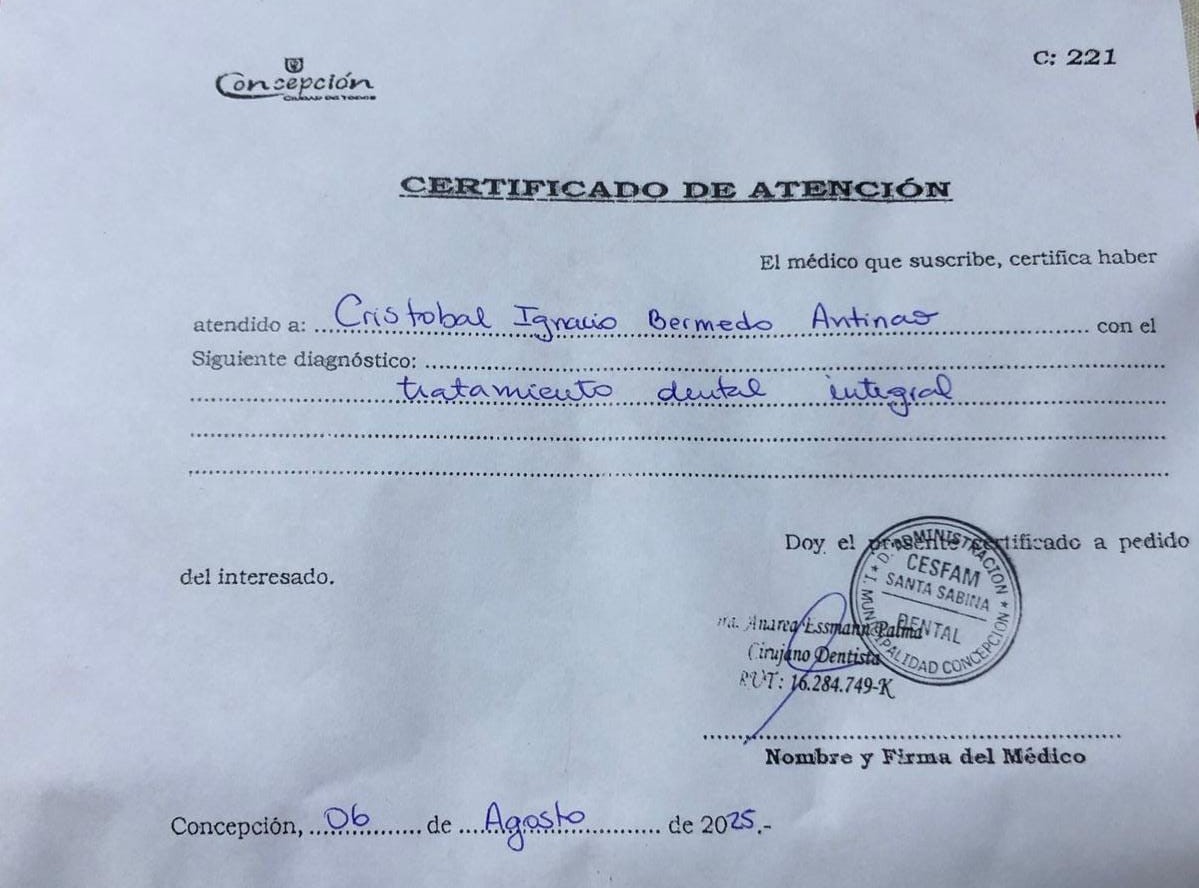 C: 221
Concepción
CIUDAD DE TODOS
CERTIFICADO DE ATENCIÓN
El médico que suscribe, certifica haber
atendido a: Cristobal Ignacio Bermedo Antinao con el
Siguiente diagnóstico:
tratamiento dental integral
Doy el presente certificado a pedido
del interesado.
D. ADMINISTRACION * I. MUNICIPALIDAD CONCEPCION *
CESFAM
SANTA SABINA
DENTAL
Dra. Andrea Essmann Palma
Cirujano Dentista
RUT: 16.284.749-K
Nombre y Firma del Médico
Concepción, 06 de Agosto de 2025.-